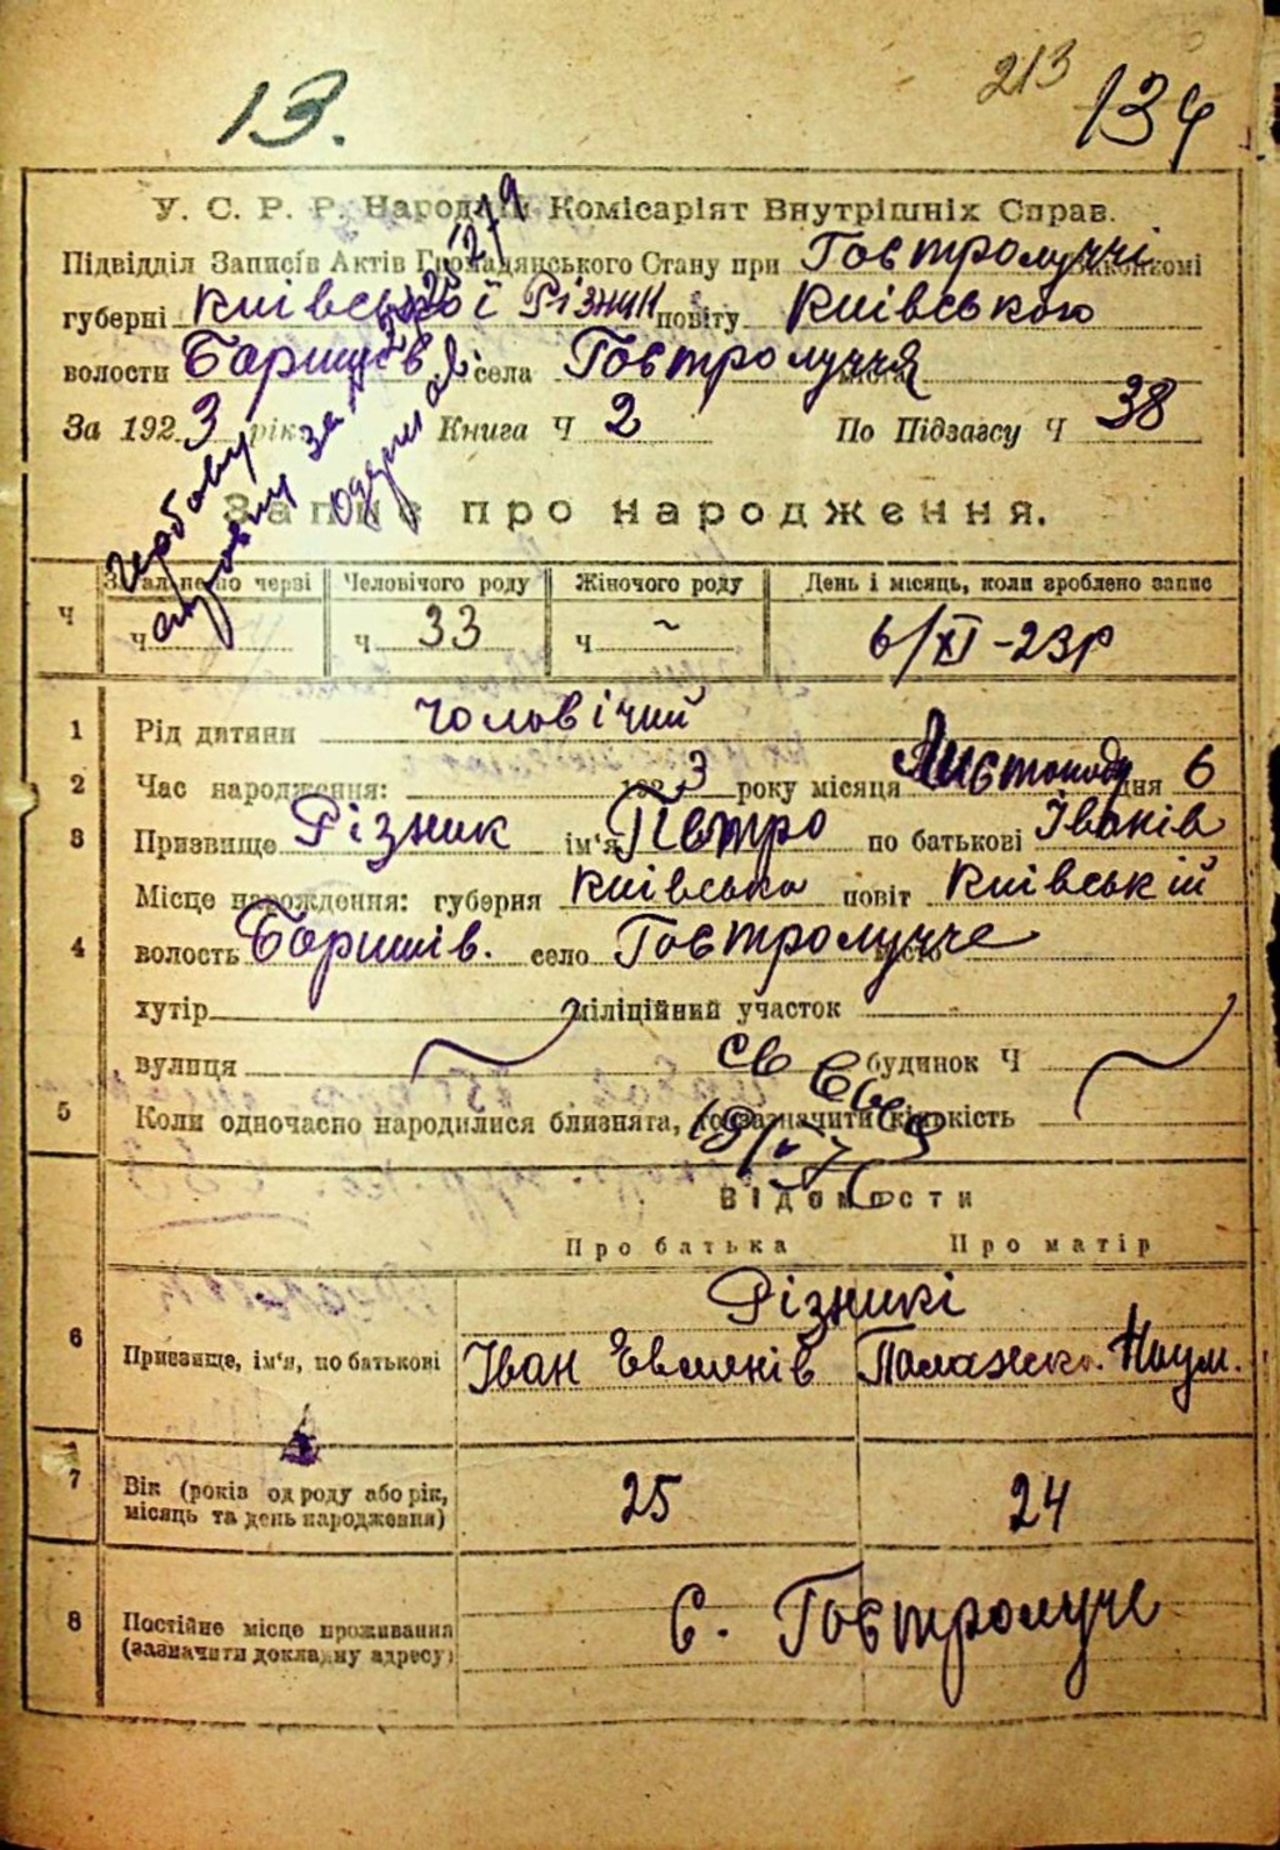 13.
213
134
У. С. Р. Р. Народній Комісаріят Внутрішніх Справ.
Підвідділ Записів Актів Громадянського Стану при Гостролуччі
губерні Київської Різник повіту Київською
волости Баришів села Гостролуччя міста
За 1923 рік Книга Ч 2 По Підзагсу Ч 38
одержав
Запис про народження.
Ч Загальне по черзі Чоловічого роду Жіночого роду День і місяць, коли зроблено запис
Ч Ч 33 Ч ~ 6/XI-23р
1 Рід дитини чоловічий
2 Час народження: 1923 року місяця Листопаду дня 6
3 Призвище Різник ім'я Петро по батькові Іванів
Місце народження: губерня Київська повіт Київській
4 волость Баришів. село Гостролучче місто
хутір міліційний участок
вулиця будинок Ч
св
5 Коли одночасно народилися близнята, то зазначити кількість
Відомости
Про батька Про матір
Різникі
6 Призвище, ім'я, по батькові Іван Евменів Палажка Наум.
7 Вік (років од роду або рік, місяць та день народження) 25 24
8 Постійне місце проживання (зазначити докладну адресу) С. Гостролуче